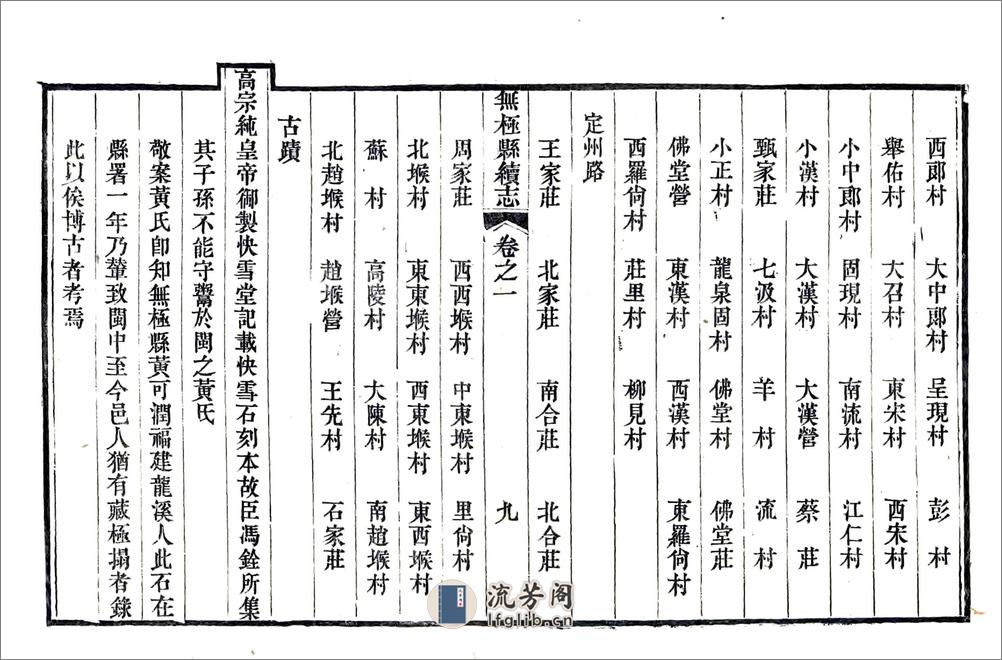 西郿村　大中郿村　呈現村　彭　村
舉佑村　大召村　東宋村　西宋村
小中郿村　固現村　南流村　江仁村
小漢村　大漢村　大漢營　蔡　莊
甄家莊　七汲村　羊　村　流　村
小正村　龍泉固村　佛堂村　佛堂莊
佛堂營　東漢村　西漢村　東羅尙村
西羅尙村　莊里村　柳見村
定州路
王家莊　北家莊　南合莊　北合莊
無極縣續志　卷之一　九
周家莊　西西堠村　中東堠村　里尙村
北堠村　東東堠村　西東堠村　東西堠村
蘇　村　高陵村　大陳村　南趙堠村
北趙堠村　趙堠營　王先村　石家莊
古蹟
高宗純皇帝御製快雪堂記載快雪石刻本故臣馮銓所集
其子孫不能守鬻於閩之黃氏
敬案黃氏卽知無極縣黃可潤福建龍溪人此石在
縣署一年乃輦致閩中至今邑人猶有藏極搨者錄
此以俟博古者考焉
流芳阁
lfglib.cn